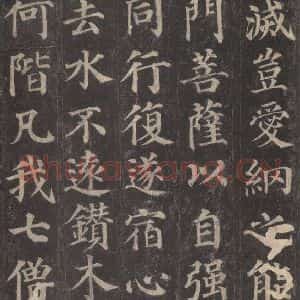 滅豈愛納之能
門菩薩以自强
同行復遂宿心
去水不遠鑽木
何階凡我七僧